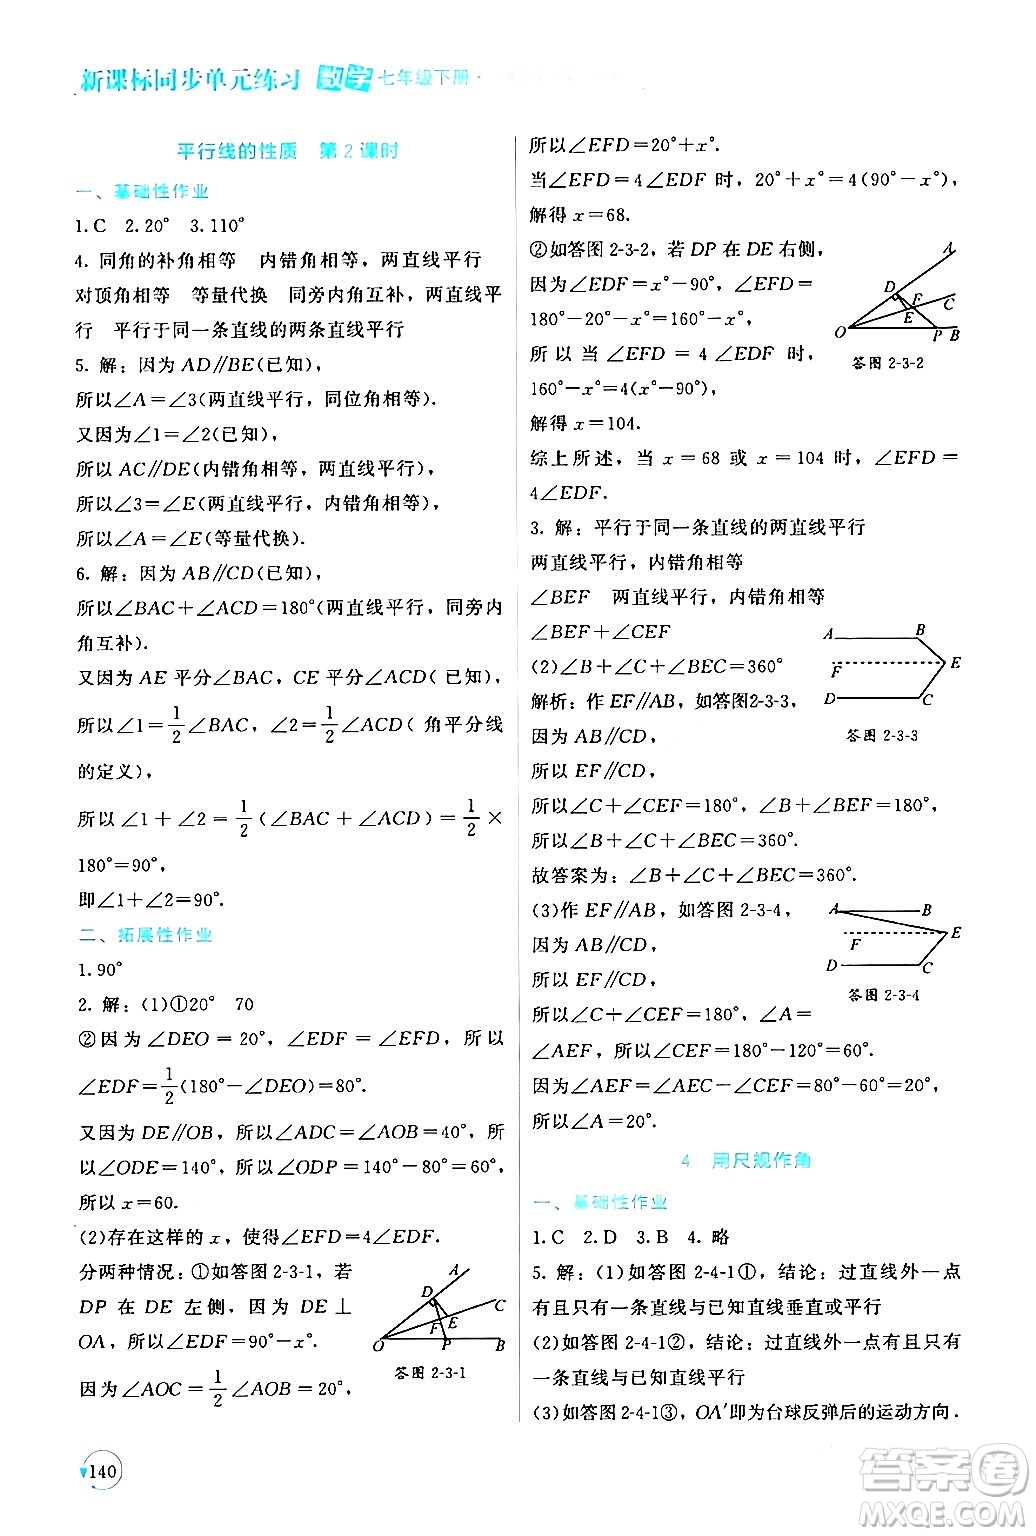 新课标同步单元练习 数学 七年级下册·
平行线的性质 第2课时
一、基础性作业
1.C 2.20° 3.110°
4. 同角的补角相等 内错角相等，两直线平行
对顶角相等 等量代换 同旁内角互补，两直线平
行 平行于同一条直线的两条直线平行
5. 解：因为 AD∥BE(已知)，
所以∠A＝∠3(两直线平行，同位角相等).
又因为∠1＝∠2(已知)，
所以 AC∥DE(内错角相等，两直线平行)，
所以∠3＝∠E(两直线平行，内错角相等)，
所以∠A＝∠E(等量代换).
6. 解：因为 AB∥CD(已知)，
所以∠BAC＋∠ACD＝180°(两直线平行，同旁内
角互补).
又因为 AE 平分∠BAC，CE 平分∠ACD(已知)，
所以∠1＝1/2∠BAC，∠2＝1/2∠ACD(角平分线
的定义)，
所以∠1＋∠2＝1/2(∠BAC＋∠ACD)＝1/2×
180°＝90°，
即∠1＋∠2＝90°.
二、拓展性作业
1.90°
2. 解：(1)①20° 70
②因为∠DEO＝20°，∠EDF＝∠EFD，所以
∠EDF＝1/2(180°－∠DEO)＝80°.
又因为 DE∥OB，所以∠ADC＝∠AOB＝40°，所
以∠ODE＝140°，所以∠ODP＝140°－80°＝60°，
所以 x＝60.
(2)存在这样的 x，使得∠EFD＝4∠EDF.
分两种情况：①如答图 2-3-1，若
DP 在 DE 左侧，因为 DE⊥
OA，所以∠EDF＝90°－x°.
因为∠AOC＝1/2∠AOB＝20°，
A
D
C
F
E
O
P
B
答图 2-3-1
140
所以∠EFD＝20°＋x°.
当∠EFD＝4∠EDF 时，20°＋x°＝4(90°－x°)，
解得 x＝68.
②如答图 2-3-2，若 DP 在 DE 右侧，
因为∠EDF＝x°－90°，∠EFD＝
180°－20°－x°＝160°－x°，
所以当∠EFD＝4∠EDF 时，
160°－x°＝4(x°－90°)，
解得 x＝104.
A
D
F
C
E
O
P
B
答图 2-3-2
综上所述，当 x＝68 或 x＝104 时，∠EFD＝
4∠EDF.
3. 解：平行于同一条直线的两直线平行
两直线平行，内错角相等
∠BEF 两直线平行，内错角相等
∠BEF＋∠CEF
(2)∠B＋∠C＋∠BEC＝360°
解析：作 EF∥AB，如答图2-3-3，
因为 AB∥CD，
所以 EF∥CD，
A
B
F
E
D
C
答图 2-3-3
所以∠C＋∠CEF＝180°，∠B＋∠BEF＝180°，
所以∠B＋∠C＋∠BEC＝360°.
故答案为：∠B＋∠C＋∠BEC＝360°.
(3)作 EF∥AB，如答图 2-3-4，
因为 AB∥CD，
所以 EF∥CD，
所以∠C＋∠CEF＝180°，∠A＝
A
B
E
F
D
C
答图 2-3-4
∠AEF，所以∠CEF＝180°－120°＝60°.
因为∠AEF＝∠AEC－∠CEF＝80°－60°＝20°，
所以∠A＝20°.
4 用尺规作角
一、基础性作业
1.C 2.D 3.B 4.略
5. 解：(1)如答图 2-4-1①，结论：过直线外一点
有且只有一条直线与已知直线垂直或平行
(2)如答图 2-4-1②，结论：过直线外一点有且只有
一条直线与已知直线平行
(3)如答图 2-4-1③，OA′即为台球反弹后的运动方向.
答案圈
MXQE.COM